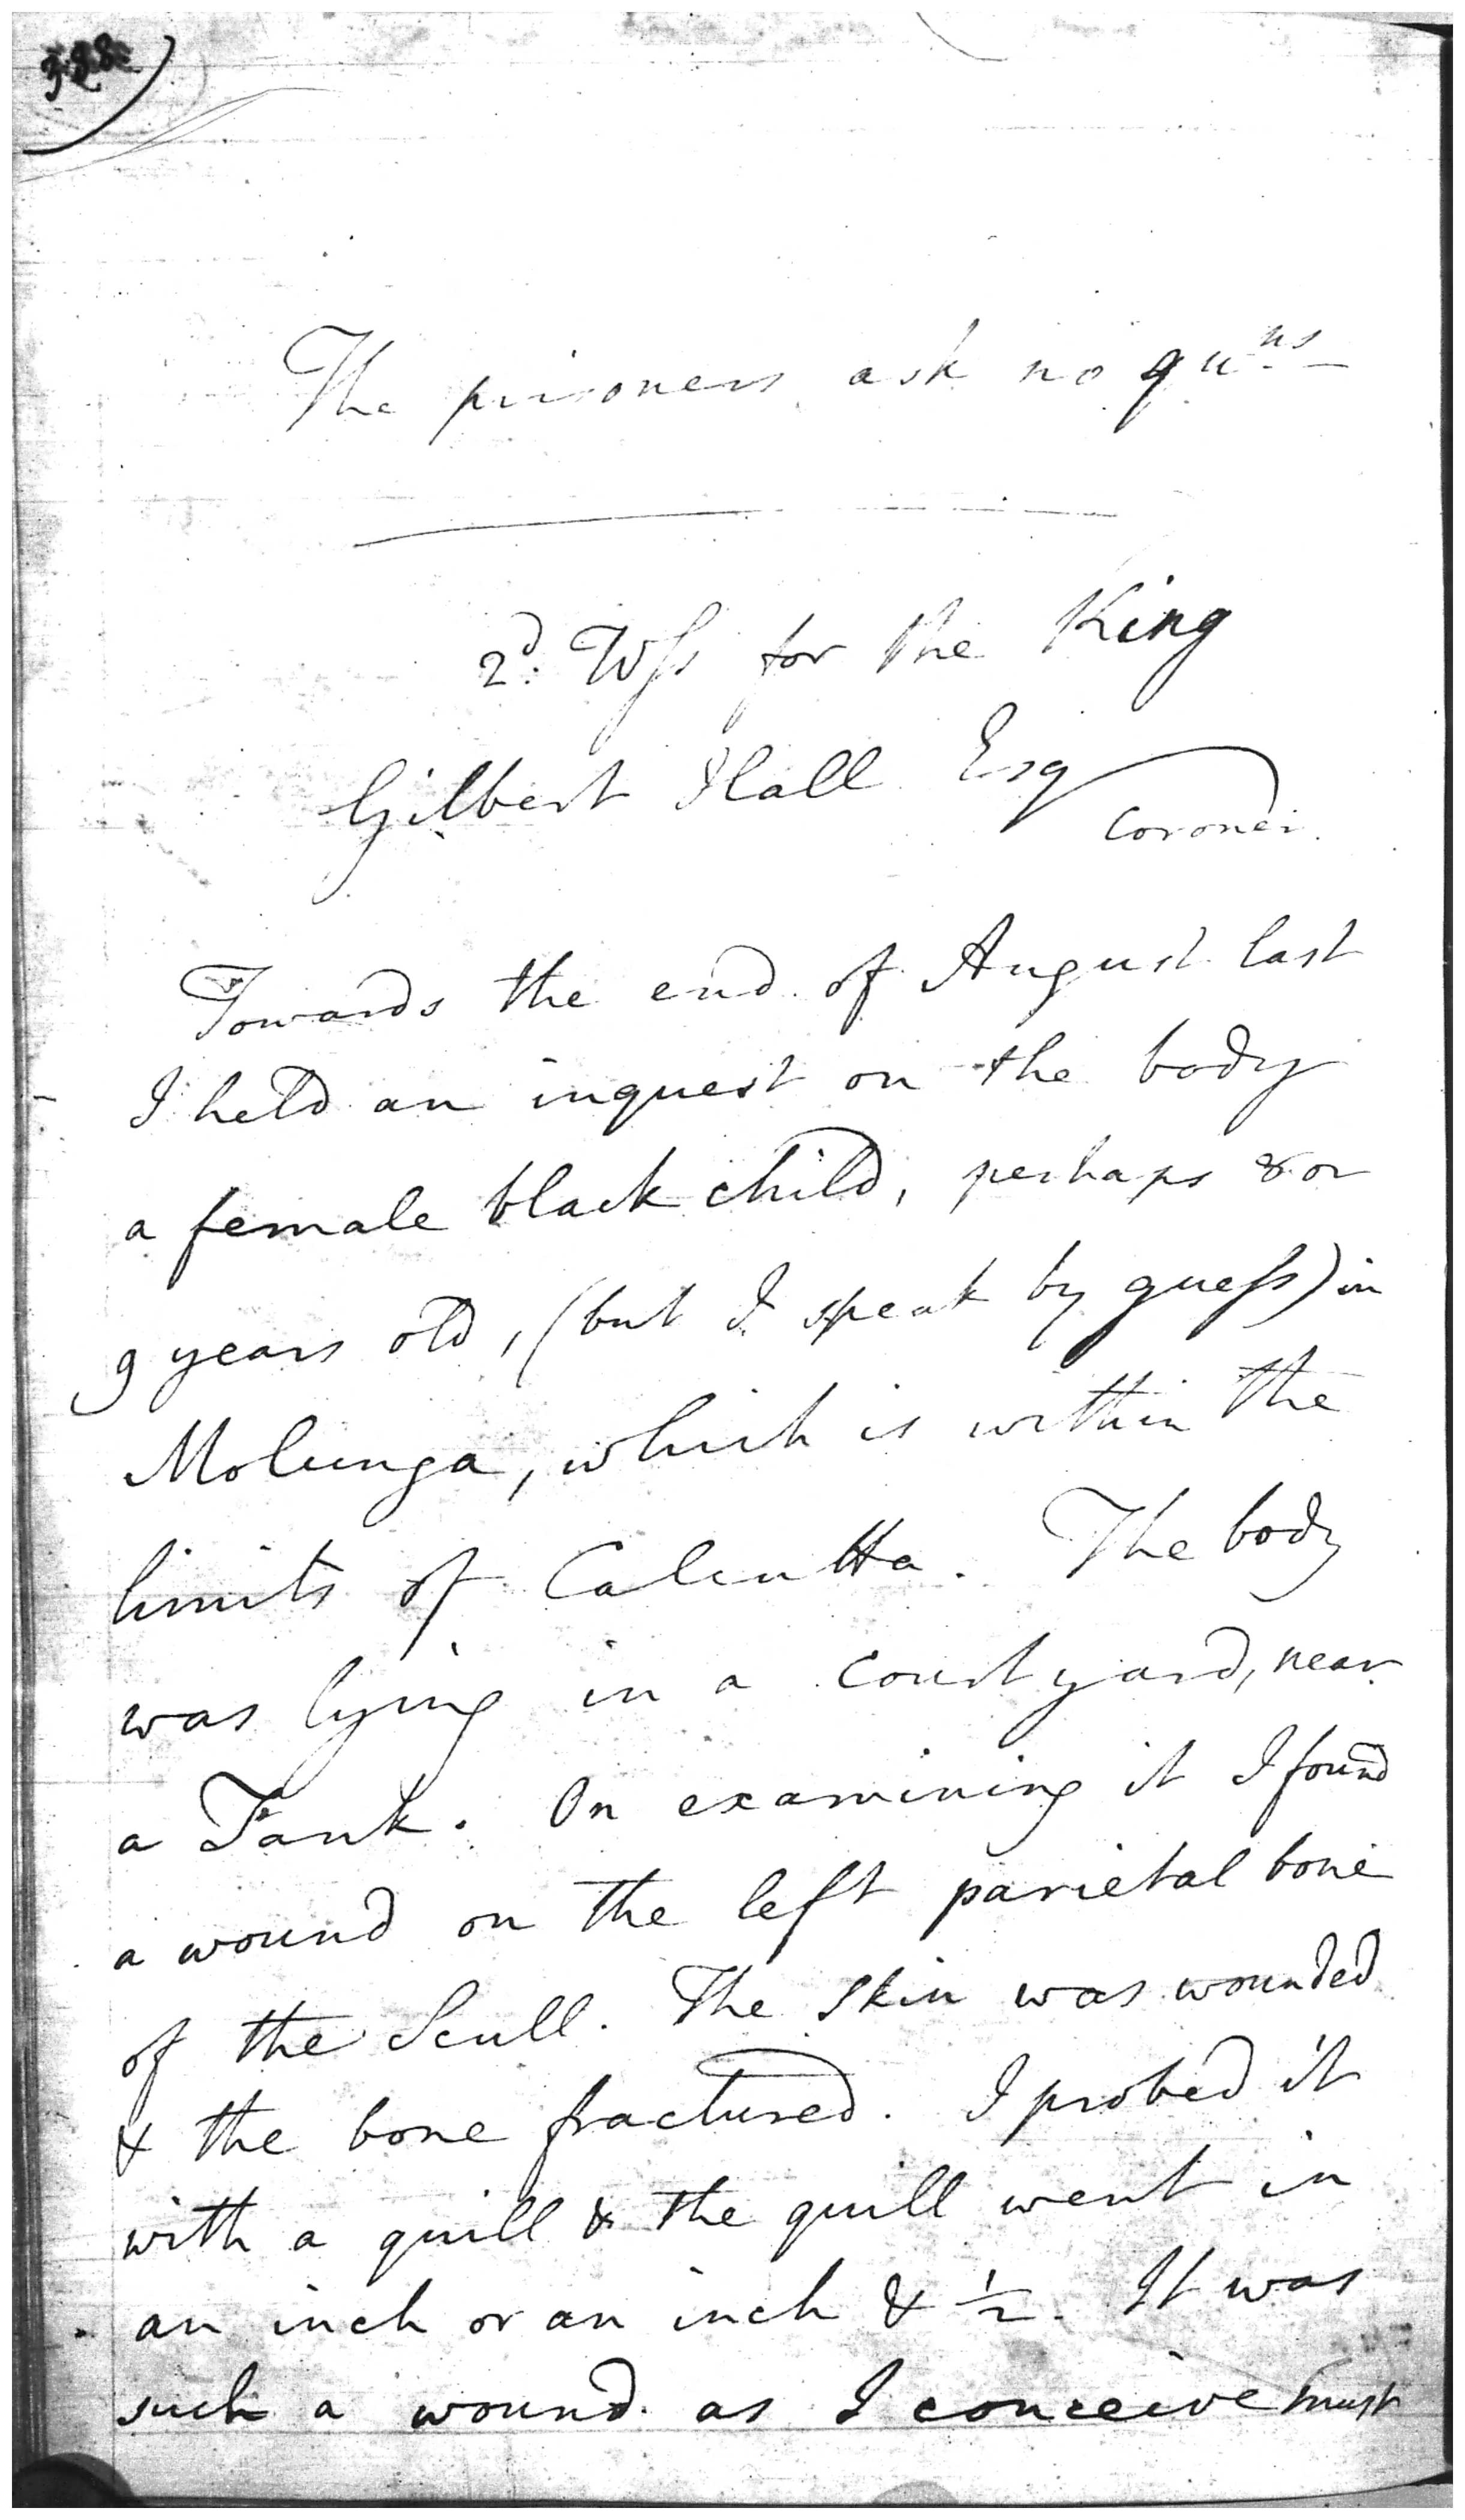 The prisoners ask no qu.ns
2d. Wss for the King
Gilbert Hall Esq
Coroner.
Towards the end of August last
I held an inquest on the body
a female black child, perhaps 8 or
9 years old, (but I speak by guess) in
Molunga, which is within the
limits of Calcutta. The body
was lying in a Court yard, near
a Tank. On examining it I found
a wound on the left parietal bone
of the Scull. The skin was wounded
& the bone fractured. I probed it
with a quill & the quill went in
an inch or an inch & ½. It was
such a wound as I conceive must